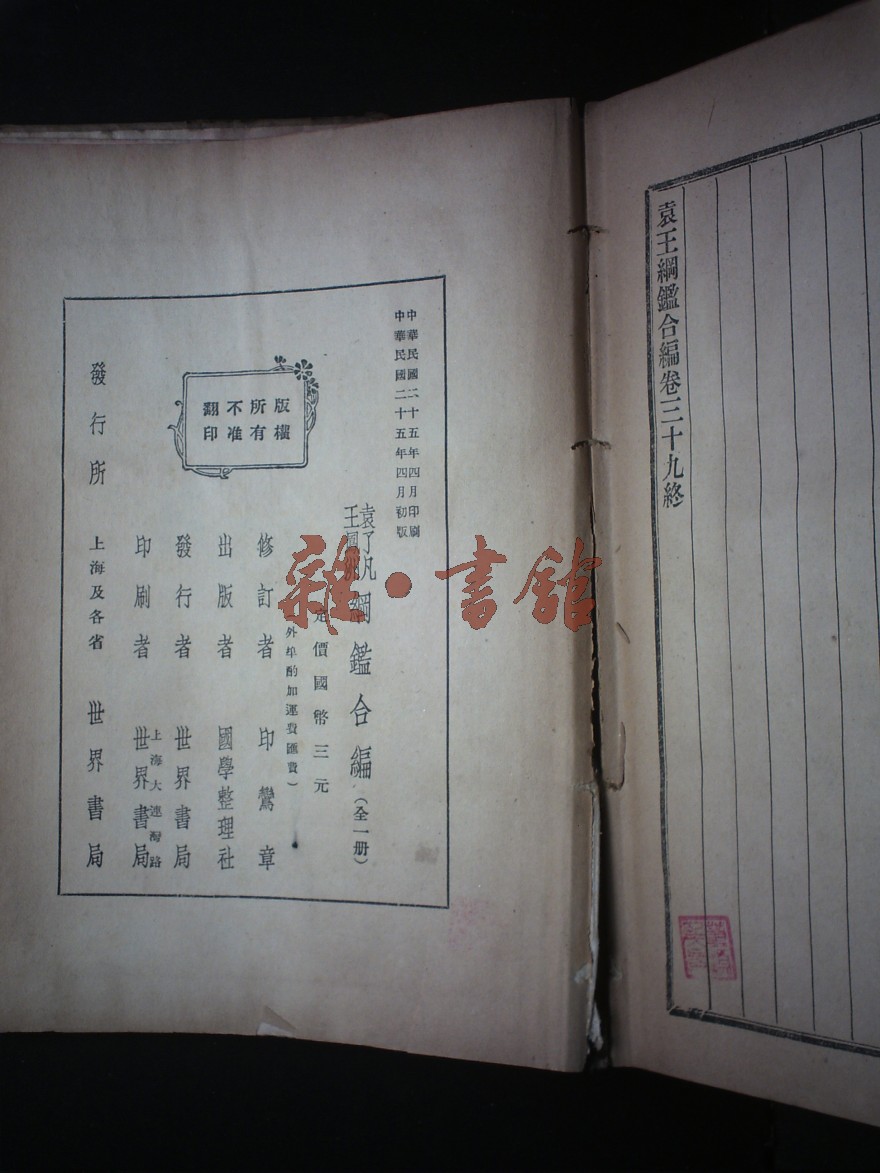 袁王綱鑑合編卷三十九終
中華民國二十五年四月印刷
中華民國二十五年四月初版
袁了凡
王
綱鑑合編(全一册)
定價國幣三元
外埠酌加運費匯費)
修訂者 印鸞章
出版者 國學整理社
發行者 世界書局
上海大連灣路
印刷者 世界書局
發行所 上海及各省 世界書局
版權
所有
不准
翻印
雜·書館